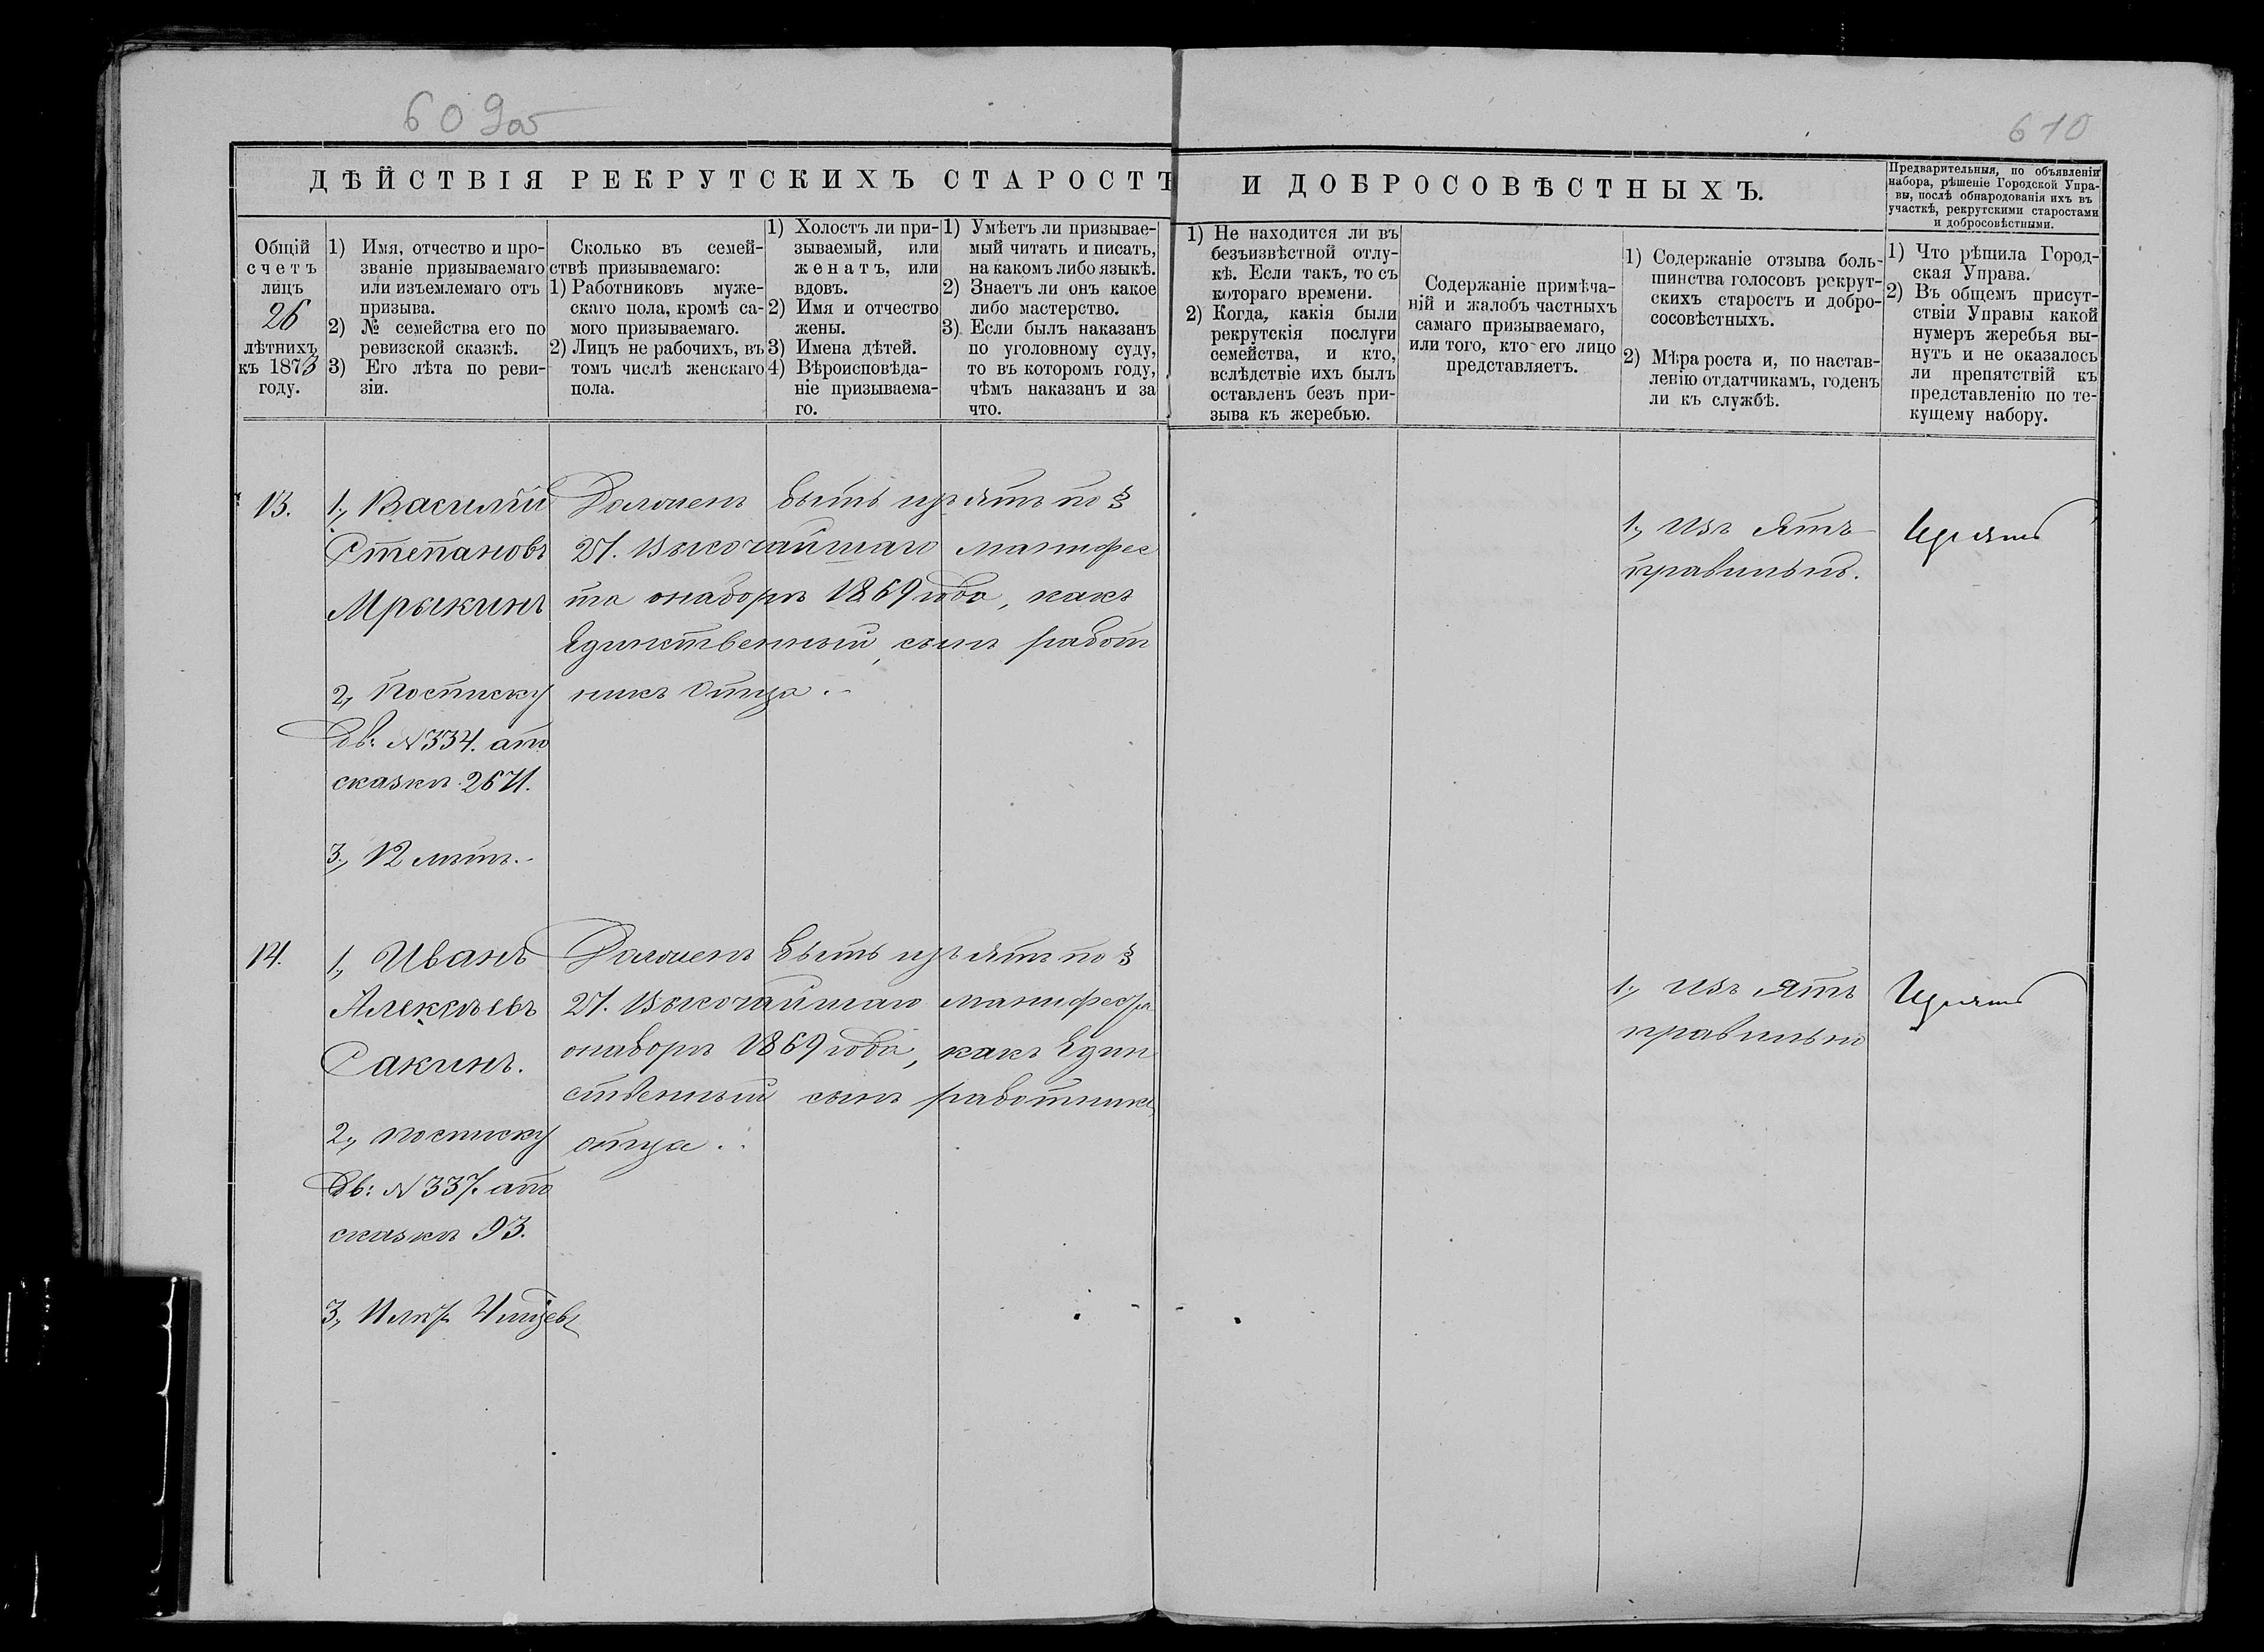 609об
610
ДѢЙСТВІЯ РЕКРУТСКИХЪ СТАРОСТЪ И ДОБРОСОВѢСТНЫХЪ.
Предварительныя, по объявленіи
набора, рѣшеніе Городской Упра-
вы, послѣ обнародованія ихъ въ
участкѣ, рекрутскими старостами
и добросовѣстными.
Общій
счетъ
лицъ
26
лѣтнихъ
къ 1873
году.
1) Имя, отчество и про-
званіе призываемаго
или изъемлемаго отъ
призыва.
2) № семейства его по
ревизской сказкѣ.
3) Его лѣта по реви-
зіи.
Сколько въ семей-
ствѣ призываемаго:
1) Работниковъ муже-
скаго пола, кромѣ са-
мого призываемаго.
2) Лицъ не рабочихъ, въ
томъ числѣ женскаго
пола.
1) Холостъ ли при-
зываемый, или
женатъ, или
вдовъ.
2) Имя и отчество
жены.
3) Имена дѣтей.
4) Вѣроисповѣда-
ніе призываема-
го.
1) Умѣетъ ли призывае-
мый читать и писать,
на какомъ либо языкѣ.
2) Знаетъ ли онъ какое
либо мастерство.
3) Если былъ наказанъ
по уголовному суду,
то въ которомъ году,
чѣмъ наказанъ и за
что.
1) Не находится ли въ
безъизвѣстной отлу-
кѣ. Если такъ, то съ
котораго времени.
2) Когда, какія были
рекрутскія послуги
семейства, и кто,
вслѣдствіе ихъ былъ
оставленъ безъ при-
зыва къ жеребью.
Содержаніе примѣча-
ній и жалобъ частныхъ
самаго призываемаго,
или того, кто его лицо
представляетъ.
1) Содержаніе отзыва боль-
шинства голосовъ рекрут-
скихъ старостъ и добро-
сосовѣстныхъ.
2) Мѣра роста и, по настав-
ленію отдатчикамъ, годенъ
ли къ службѣ.
1) Что рѣшила Город-
ская Управа.
2) Въ общемъ присут-
ствіи Управы какой
нумеръ жеребья вы-
нутъ и не оказалось
ли препятствій къ
представленію по те-
кущему набору.
13.
1., Василій
Степановъ
Мрыкинъ
2, Посписку
Дв: N334. апо
сказкѣ 2671.
3., 12 лѣтъ.
Долженъ быть изъятъ по §
27. Высочайшаго манифес
та онаборѣ 1869 года, какъ
Единственный, сынъ работ
никъ Отца.
1., Изъ Ятъ
правильно.
Изъятъ
14.
1., Иванъ
Алексѣевъ
Сакинъ.
2., посписку
Дв: N337. апо
сказкѣ 93.
Долженъ быть изъятъ по §
27. Высочайшаго манифеста
онаборѣ 1869 года, какъ Един
ственный сынъ работникъ
отца.
1., Изъ Ятъ
правильно
Изъятъ